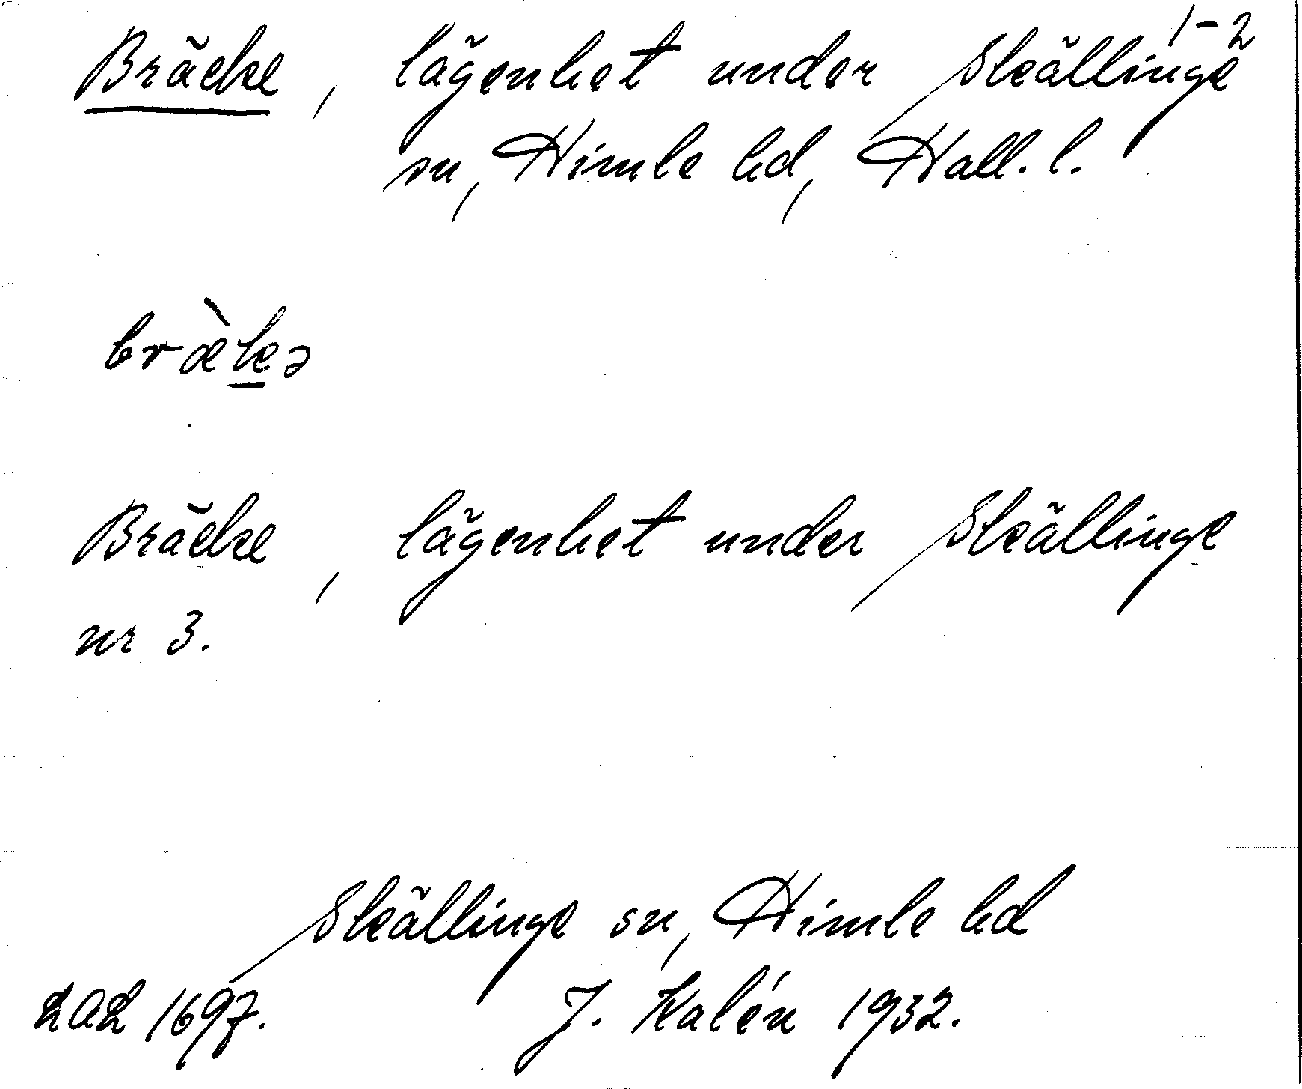 1-2
Bräcke, lägenhet under Skällinge
sn, Himle hd, Hall. l.
bræ̀k̲ə
Bräcke, lägenhet under Skällinge
nr 3.
Skällinge sn, Himle hd
LAL 1697. J. Kalén 1932.